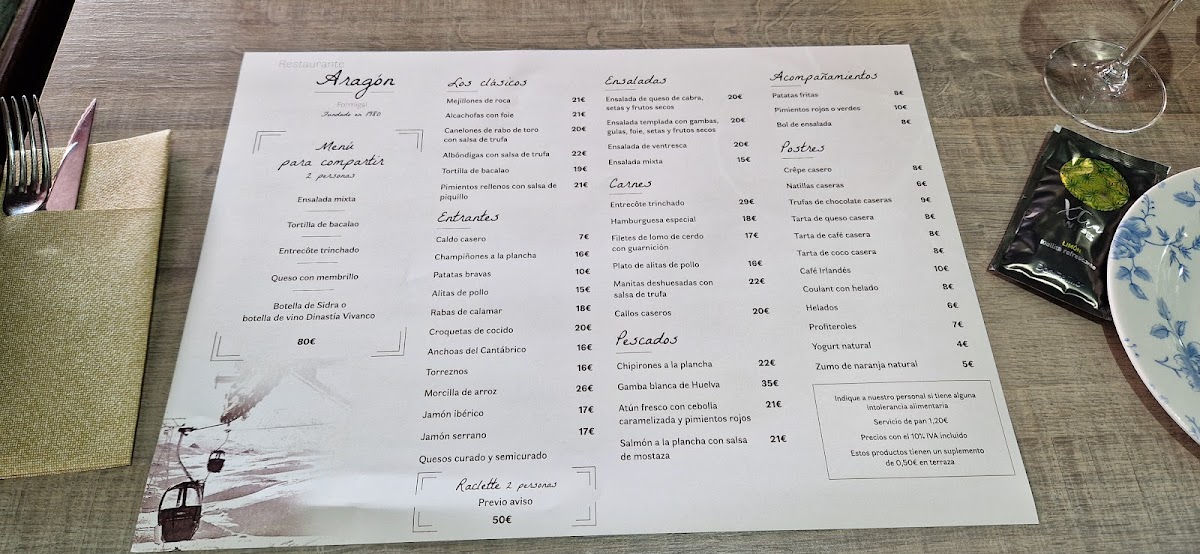 Restaurante
Aragón
Formigal
Fundado en 1980
Menú
para compartir
2 personas
Ensalada mixta
Tortilla de bacalao
Entrecôte trinchado
Queso con membrillo
Botella de Sidra o
botella de vino Dinastía Vivanco
80€
Los clásicos
Mejillones de roca 21€
Alcachofas con foie 21€
Canelones de rabo de toro 20€
con salsa de trufa
Albóndigas con salsa de trufa 22€
Tortilla de bacalao 19€
Pimientos rellenos con salsa de 21€
piquillo
Entrantes
Caldo casero 7€
Champiñones a la plancha 16€
Patatas bravas 10€
Alitas de pollo 15€
Rabas de calamar 18€
Croquetas de cocido 20€
Anchoas del Cantábrico 16€
Torreznos 16€
Morcilla de arroz 26€
Jamón ibérico 17€
Jamón serrano 17€
Quesos curado y semicurado
Raclette 2 personas
Previo aviso
50€
Ensaladas
Ensalada de queso de cabra, 20€
setas y frutos secos
Ensalada templada con gambas, 20€
gulas, foie, setas y frutos secos
Ensalada de ventresca 20€
Ensalada mixta 15€
Carnes
Entrecôte trinchado 29€
Hamburguesa especial 18€
Filetes de lomo de cerdo 17€
con guarnición
Plato de alitas de pollo 16€
Manitas deshuesadas con 22€
salsa de trufa
Callos caseros 20€
Pescados
Chipirones a la plancha 22€
Gamba blanca de Huelva 35€
Atún fresco con cebolla 21€
caramelizada y pimientos rojos
Salmón a la plancha con salsa 21€
de mostaza
Acompañamientos
Patatas fritas 8€
Pimientos rojos o verdes 10€
Bol de ensalada 8€
Postres
Crêpe casero 8€
Natillas caseras 6€
Trufas de chocolate caseras 9€
Tarta de queso casera 8€
Tarta de café casera 8€
Tarta de coco casera 8€
Café Irlandés 10€
Coulant con helado 8€
Helados 6€
Profiteroles 7€
Yogurt natural 4€
Zumo de naranja natural 5€
Indique a nuestro personal si tiene alguna
intolerancia alimentaria
Servicio de pan 1,20€
Precios con el 10% IVA incluido
Estos productos tienen un suplemento
de 0,50€ en terraza
LIMÓN